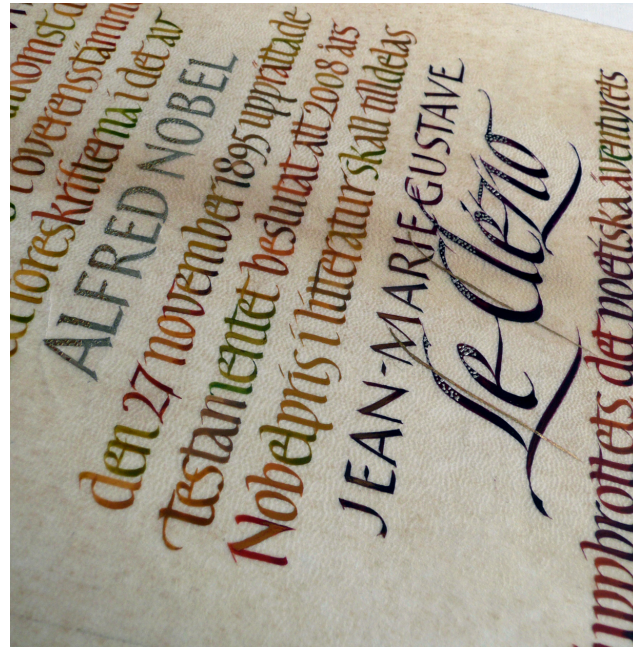 i överensstämm
föreskrifterna i det av
ALFRED NOBEL
den 27 november 1895 upprättade
Testamentet beslutat att 2008 års
Nobelpris i litteratur skall tilldelas
JEAN-MARIE GUSTAVE
Le Clézio
uppbrottets det poetiska äventyrets